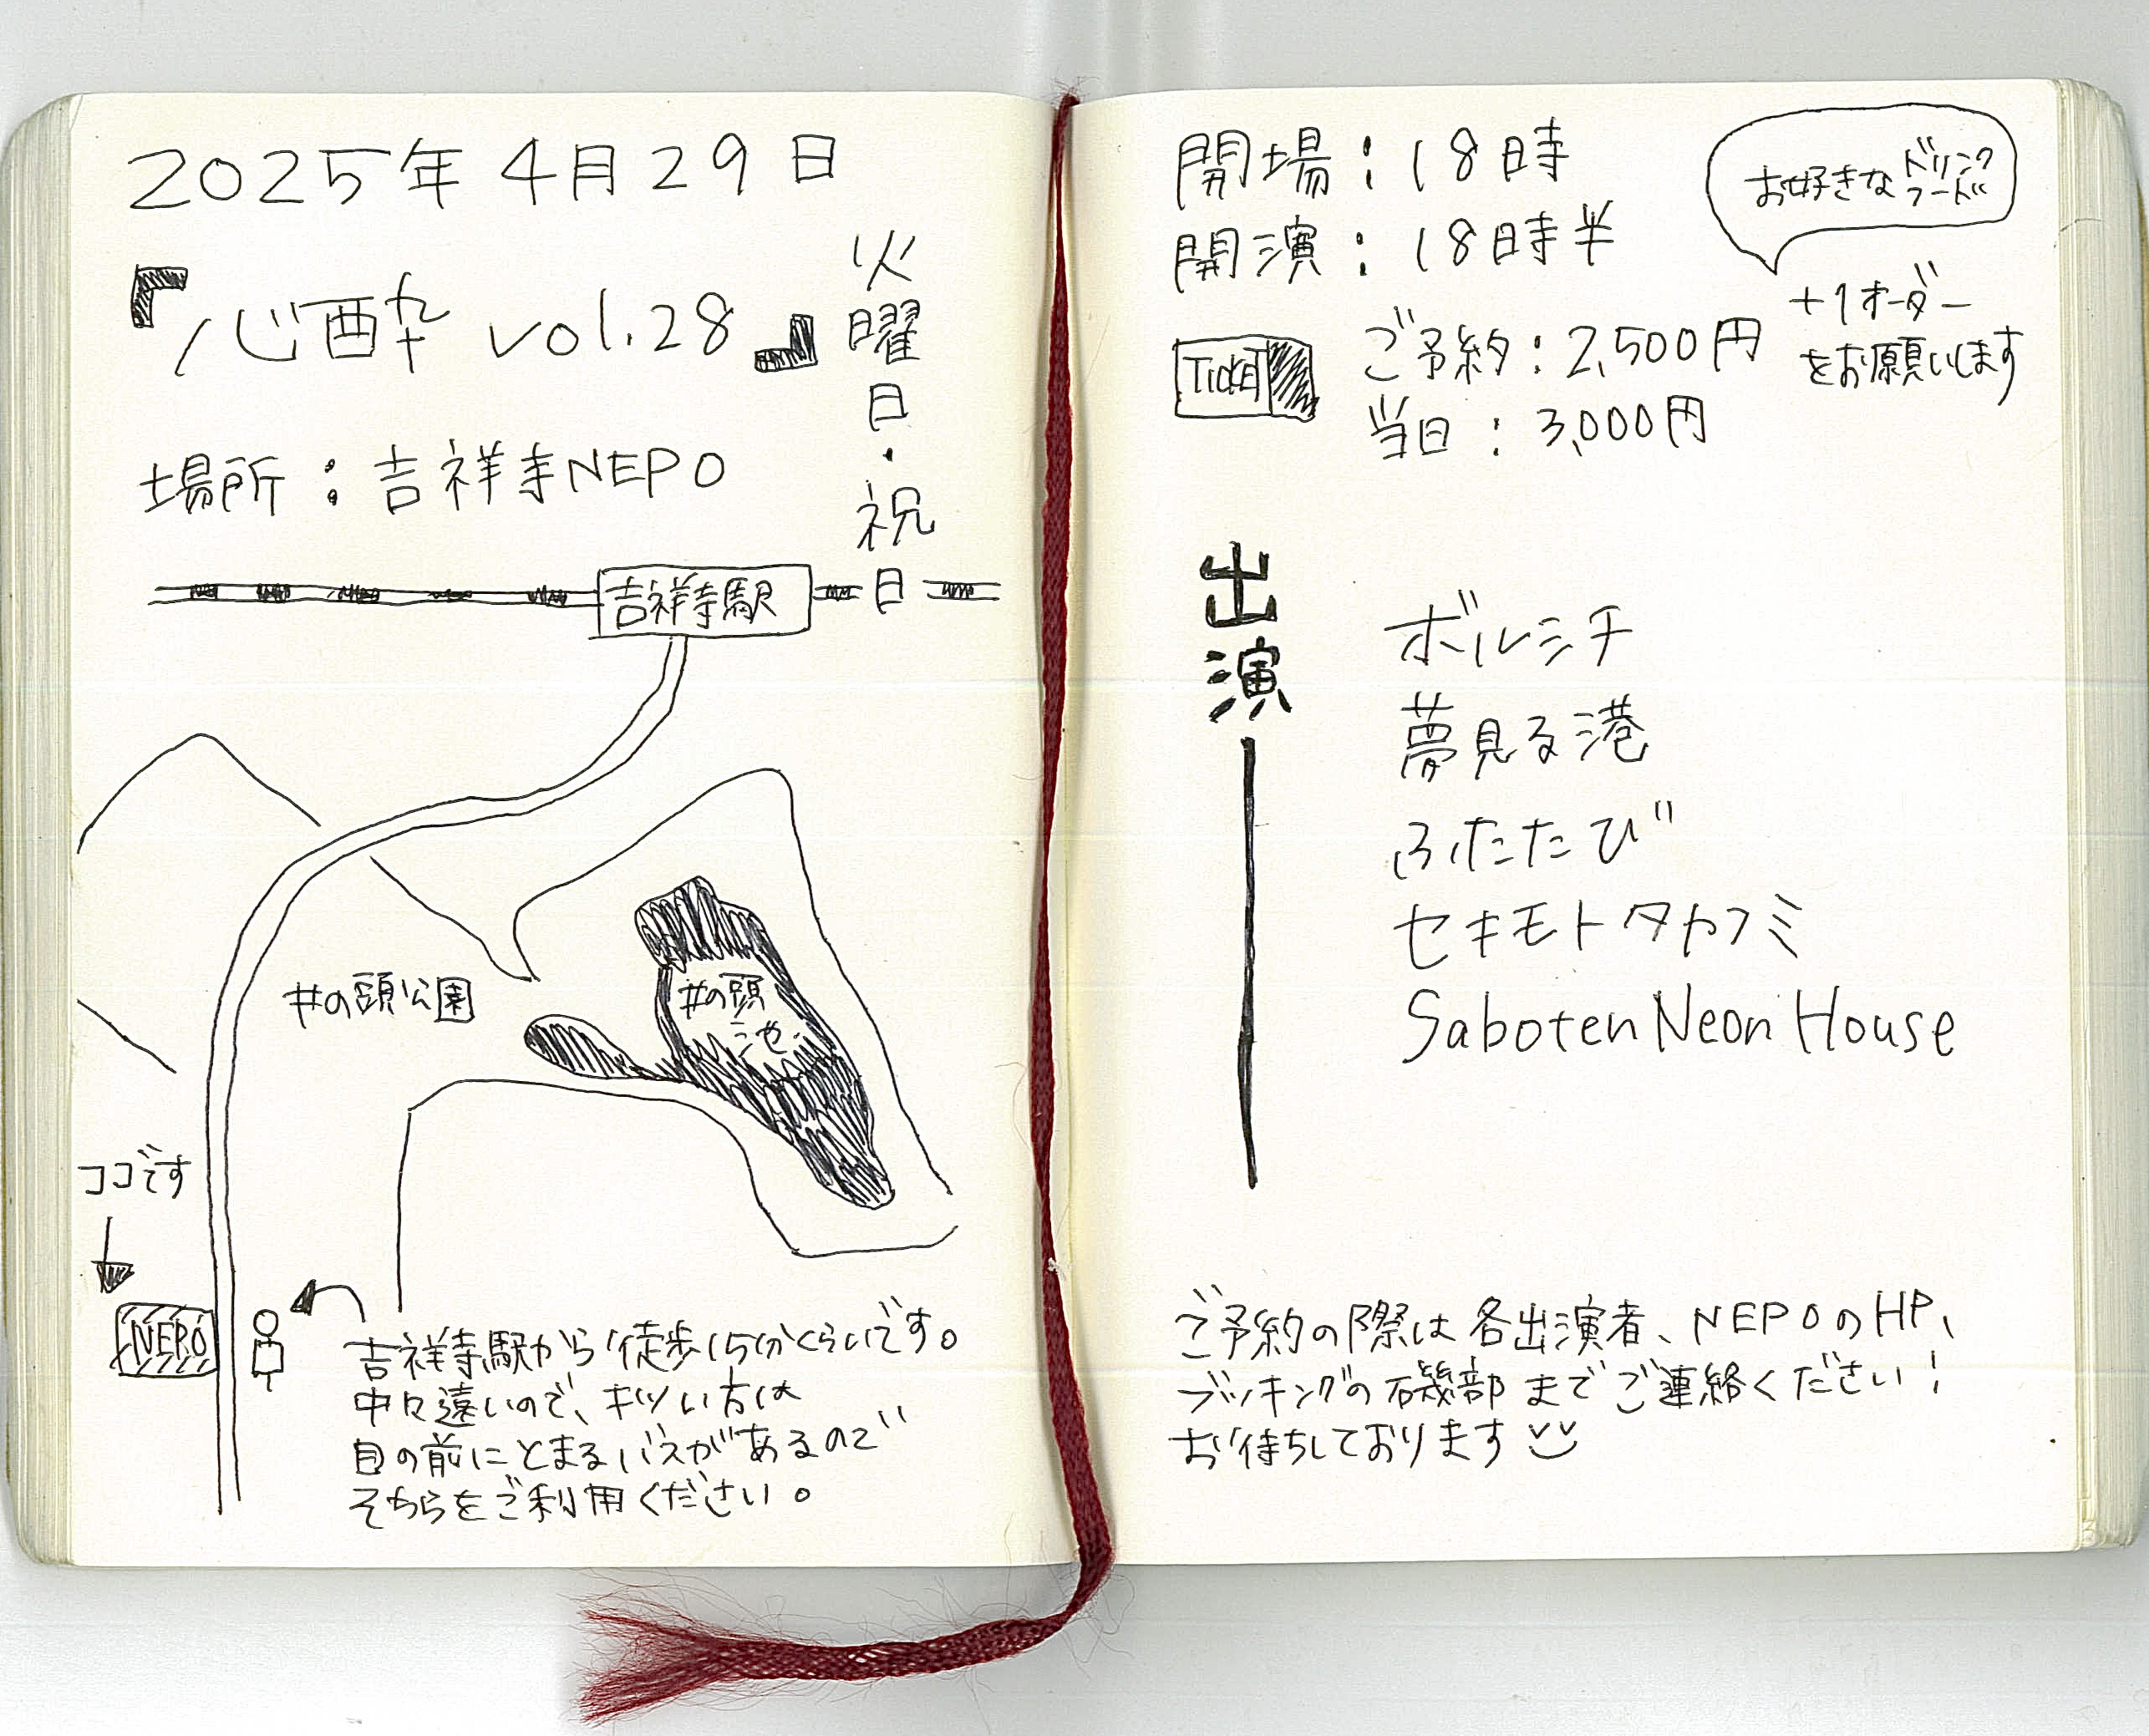 2025年4月29日
火曜日・祝日
『心酔 vol.28』
場所：吉祥寺NEPO
吉祥寺駅
井の頭公園
井の頭
池
ココです
NEPO
吉祥寺駅から徒歩15分くらいです。
中々遠いので、キツい方は
目の前にとまるバスがあるので
そちらをご利用ください。
開場：18時
開演：18時半
Ticket
ご予約：2,500円
当日：3,000円
お好きなドリンク
フード
+1オーダー
をお願いします
出演
ボルシチ
夢見る港
ふたたび
セキモトタカフミ
Saboten Neon House
ご予約の際は各出演者、NEPOのHP、
ブッキングの磯部までご連絡ください！
お待ちしております